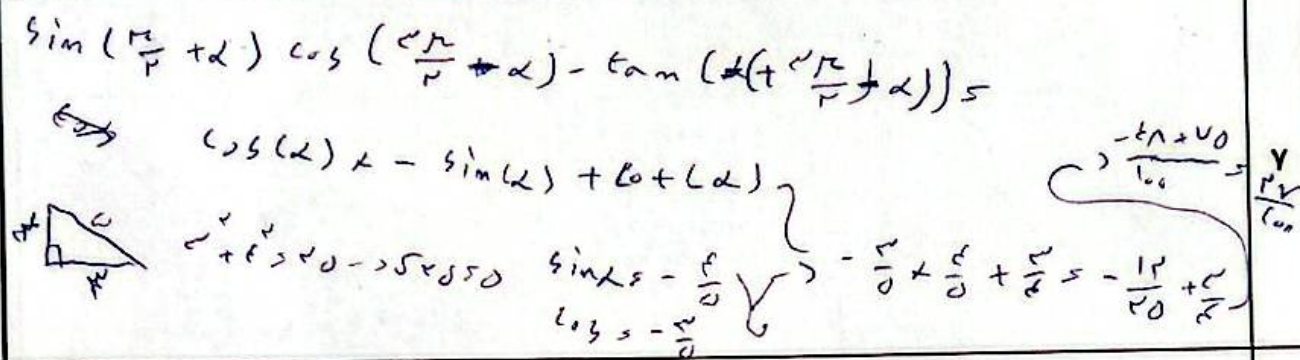 sin(π/۲ + α) cos(۳π/۲ + α) - tan((+۳π/۲ + α)) =
cos(α) × - sin(α) + cot(α)
-۴۸+۷۵/۱۰۰ =
۲۷/۱۰۰
۵
۳² + ۴² = ۲۵ -> √۲۵ = ۵ sinα = -۴/۵
cos = -۳/۵
-۳/۵ × ۴/۵ + ۳/۴ = -۱۲/۲۵ + ۳/۴